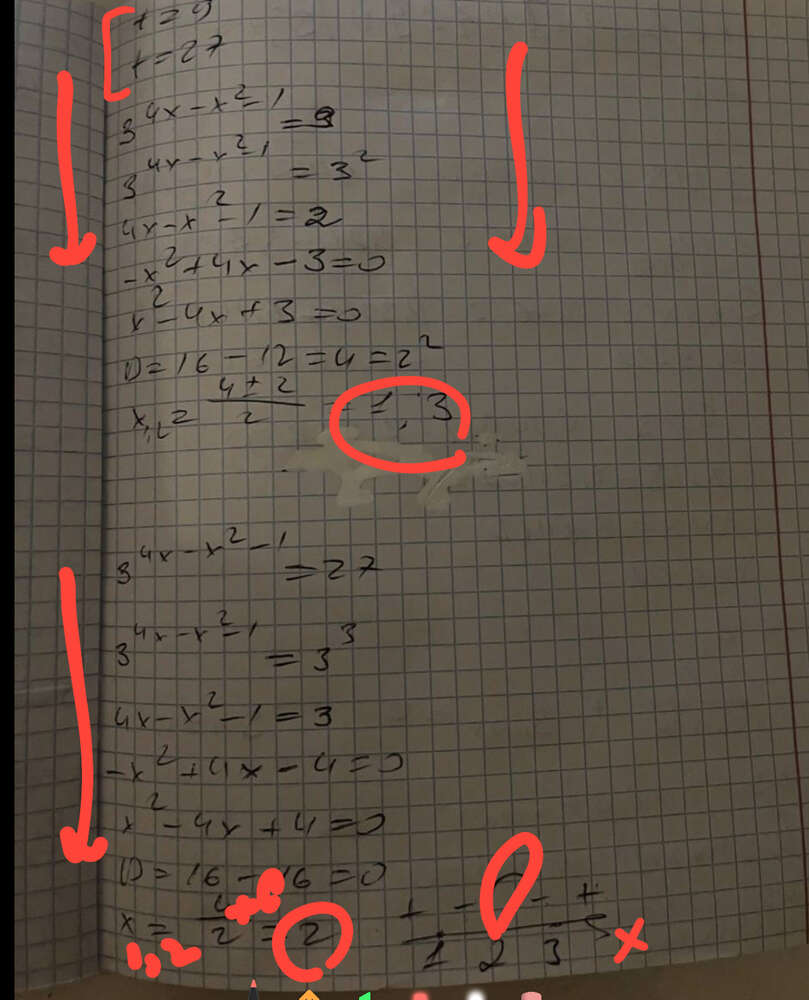 t=9
t=27
3^(4x-x²-1) = 9
3^(4x-x²-1) = 3²
4x-x²-1=2
-x²+4x-3=0
x²-4x+3=0
D=16-12=4=2²
x₁,₂= (4±2)/2 = 1, 3
3^(4x-x²-1) =27
3^(4x-x²-1) = 3³
4x-x²-1=3
-x²+4x-4=0
x²-4x+4=0
D=16-16=0
+ - - +
x₁,₂ = 4±0/2 = 2
1 2 3 x